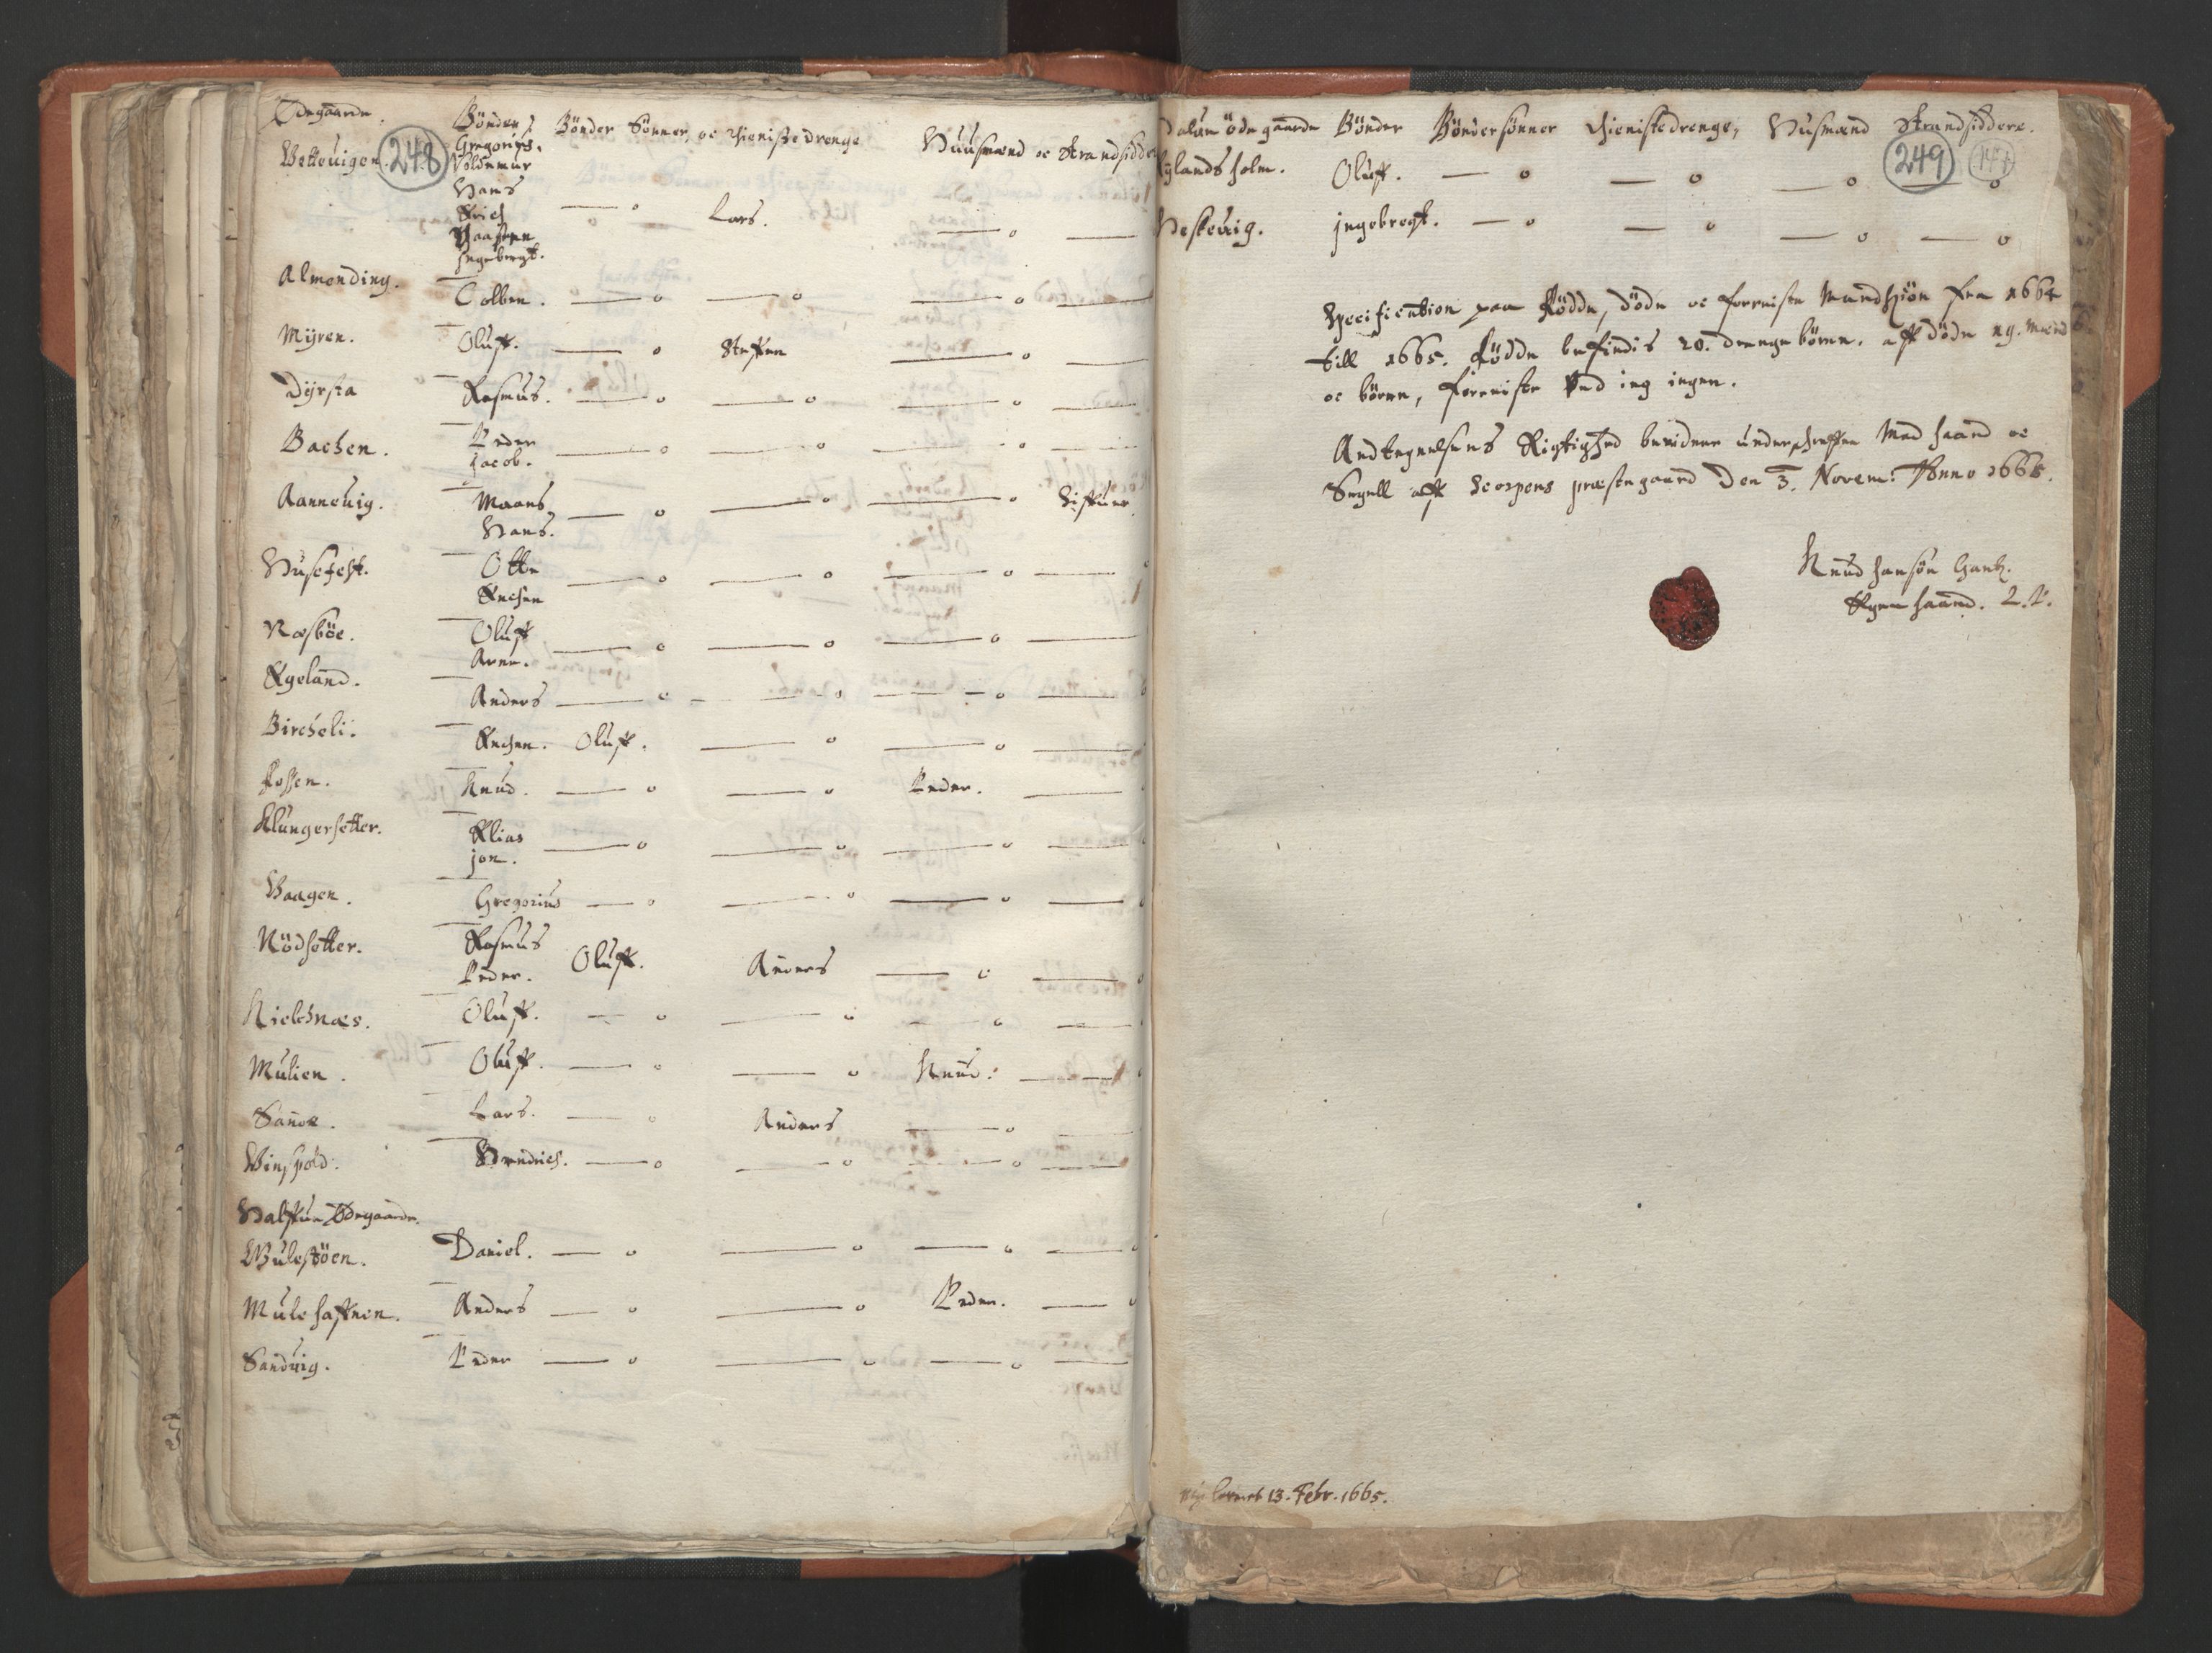 Ödegaarde. Bönder Bönder Sönner, oc thienistedrenge Huusmænd oc Strandsidde
248
Vetteuigen. Gregorius.
Voldemar
Hans
Erich — o Lars. — o —
Haaften
Ingebrigt.
Almending. Tolben. — o — o — o —
Mÿren. Oluff. — o Steffen — o —
Dÿrsta Rasmus. — o — o — o —
Bachen. Peder
Jacob. — o — o — o —
Aanneuig. Maans — o — o — o
Hans.
Husefest. Otte — o — o — o —
Næsböe. Oluff — o — o — o —
Arne.
Egeland. Anders — o — o — o — o
Bircheli. Oluff. — o — o — o
Fossen. Knud. — o — o Peder. —
Klungersetter. Elias — o — o — o — o
jon.
Vaagen. Gregorius — o — o — o — o
Nödsetter. Rasmus Oluff. Anders — o — o
Peder.
Kielesnæs. Oluff. — o — o — o — o
Mulien. Oluff. — o — o Knud. —
Sanoe. Lars. — o Anders — o —
Winspold. Hendrich. — o — o — o —
Halffue Ödegaarde.
Wulestöen. Daniel. — o — o — o — o
Mulehaffnen. Anders — o — o Peder. — o
Sanduig. Peder — o — o — o —
ödegaarde Bönder Bönder sönner thienistedrenge, Husmænd Strandsiddere.
249 147
holm. Oluff. — o — o — o — o
Heskeuig. jngebregt. — o — o — o — o
Specification paa Födde, döde oc forreiste Mandkiön fra 1664
till 1665. Födde befindis 20. drengebörn. aff döde 29. mænd
oc börn, forreiste ved ieg ingen.
Andtegnelsens Rigtighed bevidner underschreffen Med haand oc
Segell aff præstegaard Den 3. Novem: Anno 1665.
Knud hansön
Egen haand. L.S.
13. Febr. 1665.